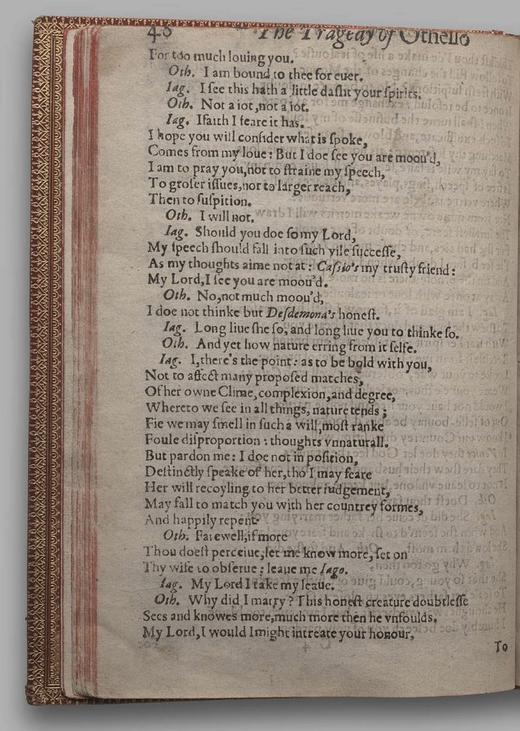 48 The Tragedy of Othello
For too much louing you.
Oth. I am bound to thee for euer.
Iag. I see this hath a little dasht your spirits.
Oth. Not a iot, not a iot.
Iag. Ifaith I feare it has.
I hope you will consider what is spoke,
Comes from my loue: But I doe see you are moou'd,
I am to pray you, not to straine my speech,
To groser issues, nor to larger reach,
Then to suspition.
Oth. I will not.
Iag. Should you doe so my Lord,
My speech should fall into such vile successe,
As my thoughts aime not at: Cassio's my trusty friend:
My Lord, I see you are moou'd.
Oth. No, not much moou'd,
I doe not thinke but Desdemona's honest.
Iag. Long liue she so, and long liue you to thinke so.
Oth. And yet how nature erring from it selfe.
Iag. I, there's the point: as to be bold with you,
Not to affect many proposed matches,
Of her owne Clime, complexion, and degree,
Whereto we see in all things, nature tends;
Fie we may smell in such a will, most ranke
Foule disproportion: thoughts vnnaturall.
But pardon me: I doe not in position,
Destinctly speake of her, tho I may feare
Her will recoyling to her better iudgement,
May fall to match you with her countrey formes,
And happily repent
Oth. Farewell, if more
Thou doest perceiue, let me know more, set on
Thy wife to obserue: leaue me Iago.
Iag. My Lord I take my leaue.
Oth. Why did I marry? This honest creature doubtlesse
Sees and knowes more, much more then he vnfoulds.
My Lord, I would I might intreate your honour,
To